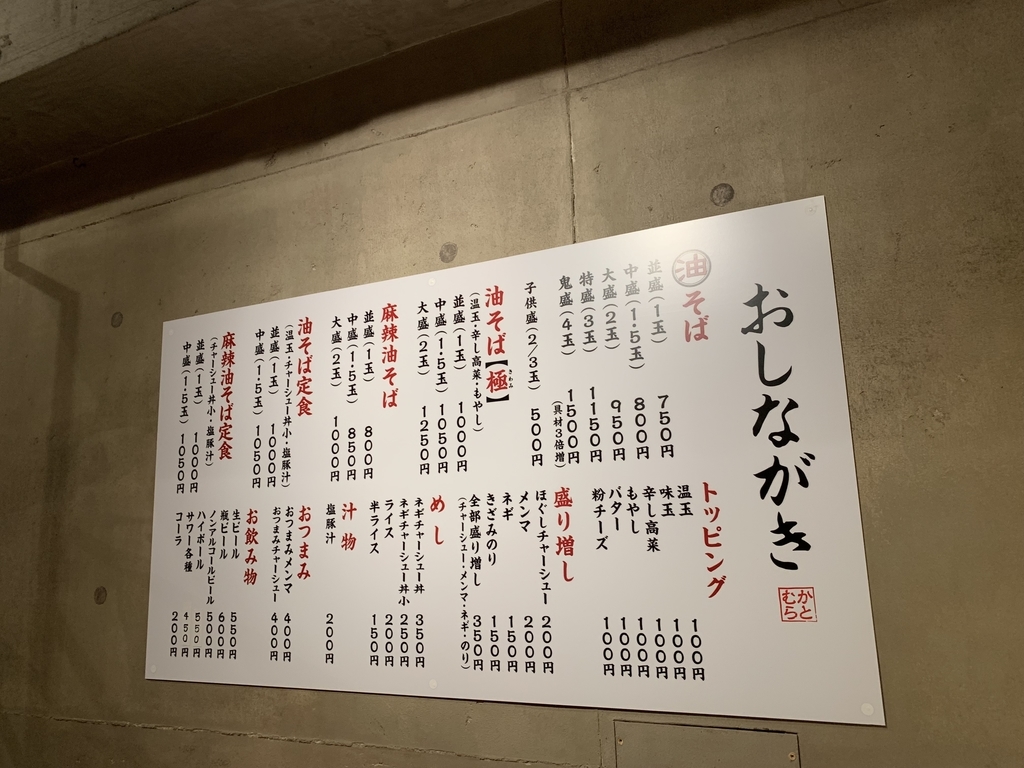 おしながき
かとむら
油そば
並盛(1玉) 750円
中盛(1.5玉) 800円
大盛(2玉) 950円
特盛(3玉) 1150円
鬼盛(4玉) 1500円
(具材3倍増)
子供盛(2/3玉) 500円
油そば【極】
きわみ
(温玉・辛し高菜・もやし)
並盛(1玉) 1000円
中盛(1.5玉) 1050円
大盛(2玉) 1250円
麻辣油そば
並盛(1玉) 800円
中盛(1.5玉) 850円
大盛(2玉) 1000円
油そば定食
(温玉・チャーシュー丼小・塩豚汁)
並盛(1玉) 1000円
中盛(1.5玉) 1050円
麻辣油そば定食
(チャーシュー丼小・塩豚汁)
並盛(1玉) 1000円
中盛(1.5玉) 1050円
トッピング
温玉 100円
味玉 100円
辛し高菜 100円
もやし 100円
バター 100円
粉チーズ 100円
盛り増し
ほぐしチャーシュー 200円
メンマ 200円
ネギ 150円
きざみのり 150円
全部盛り増し 350円
(チャーシュー・メンマ・ネギ・のり)
めし
ネギチャーシュー丼 350円
ネギチャーシュー丼小 250円
ライス 200円
半ライス 150円
汁物
塩豚汁 200円
おつまみ
おつまみメンマ 400円
おつまみチャーシュー 400円
お飲み物
生ビール 550円
瓶ビール 600円
ノンアルコールビール 500円
ハイボール 550円
サワー各種 450円
コーラ 200円